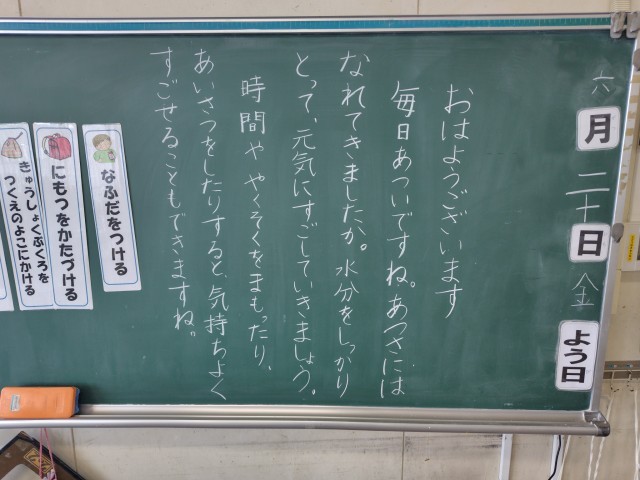 六月二十日金よう日
おはようございます
毎日あついですね。あつさには
なれてきましたか。水分をしっかり
とって、元気にすごしていきましょう。
時間ややくそくをまもったり、
あいさつをしたりすると、気持ちよく
すごせることもできますね。
なふだをつける
にもつをかたづける
きゅうしょくぶくろを
つくえのよこにかける